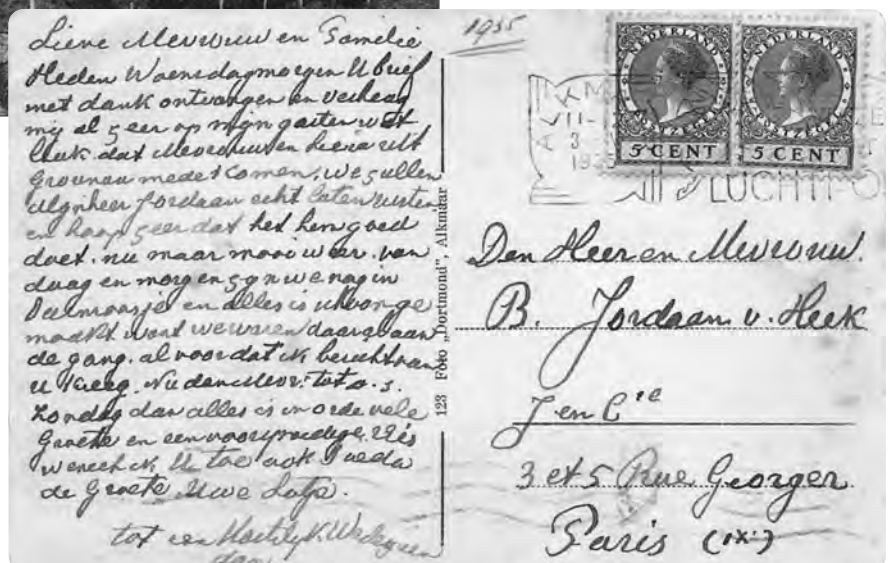 Lieve Mevrouw en Familie
Heden Woensdagmorgen U brief
met dank ontvangen en verheug
mij al zeer op mijn gasten wat
leuk dat Mevrouw en uit
Grounau mede komen, we zullen
Mynheer Jordaan echt laten rusten
en hoop zeer dat het hem goed
doet. nu maar mooi weer. van
daag en morgen zyn we nog in
en alles is schoon ge
maakt want we waren daar al aan
de gang. al voordat ik bericht van
U kreeg. Nu dan Mevr. tot a.s.
Zondag dan alles is in orde vele
Groete en een voorspoedige reis
wensch ik U toe ook
de Groete Uwe
tot een Hartelyk
dan
1935
NEDERLAND
POSTZEGEL
5 CENT
NEDERLAND
POSTZEGEL
5 CENT
ALKM
3
1935
LUCHTPO
123 Foto „Dortmond”, Alkmaar
Den Heer en Mevrouw.
B. Jordaan v. Heek
J en Cie
3 et 5 Rue Georger
Paris (IXe)